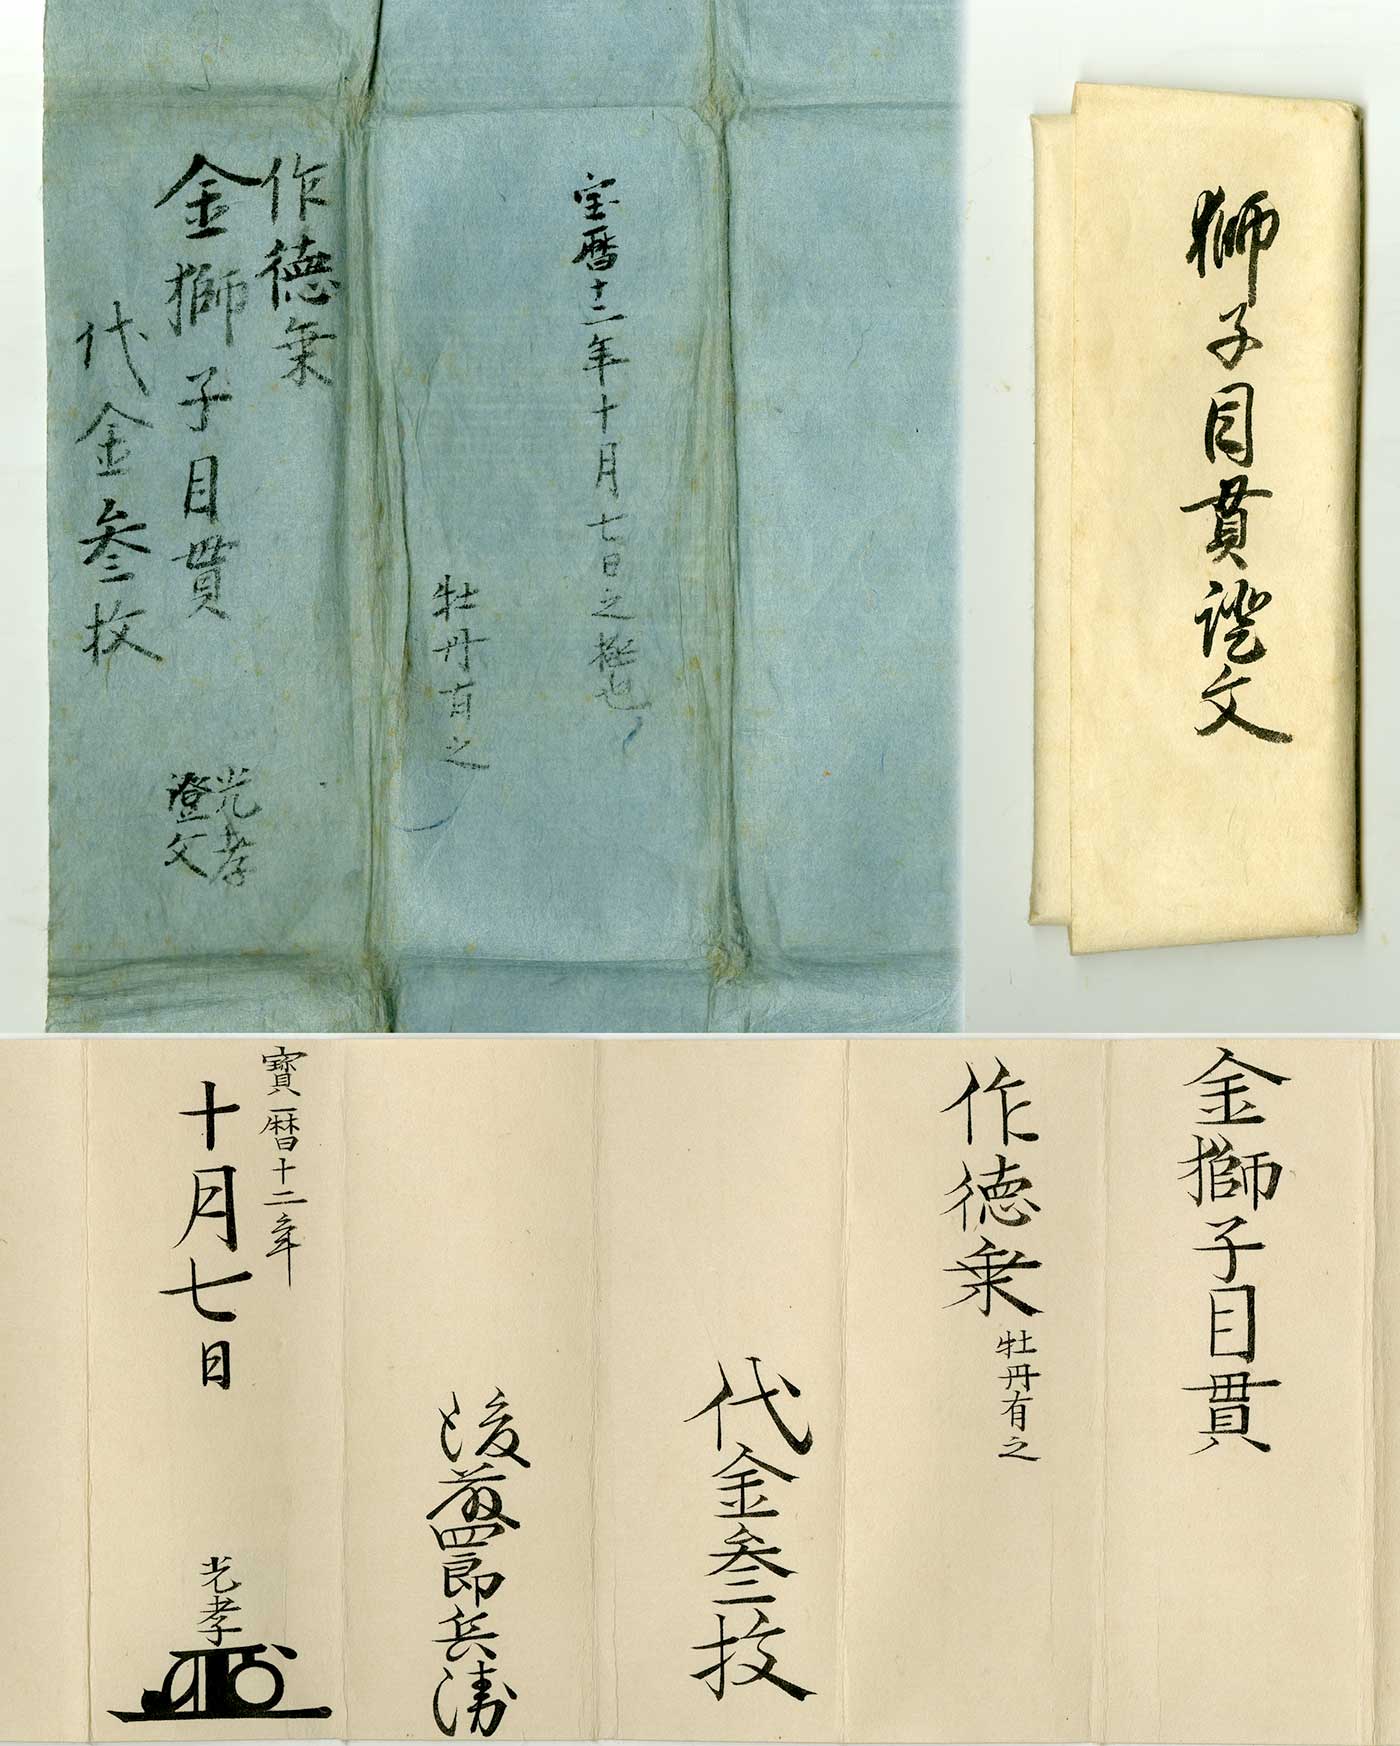 獅子目貫證文
宝暦十二年十月七日之極也
牡丹有之
作徳乗
金獅子目貫
代金叁枚
光孝
證文
金獅子目貫
作徳乗
牡丹有之
代金叁枚
後藤四郎兵衛
寶暦十二年
十月七日
光孝